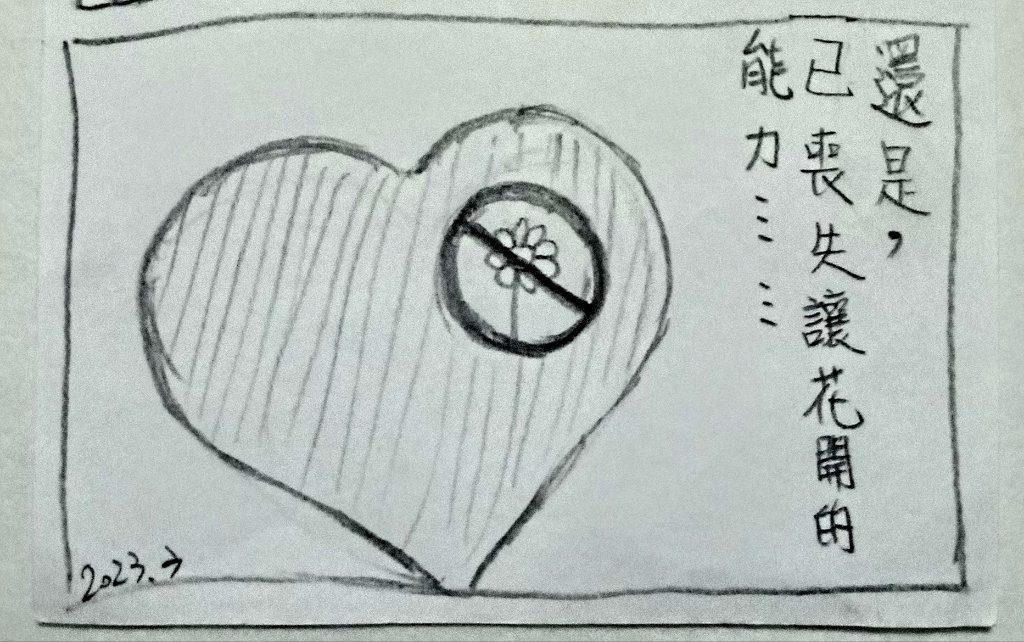 還是，
已喪失讓花開的
能力……
2023.